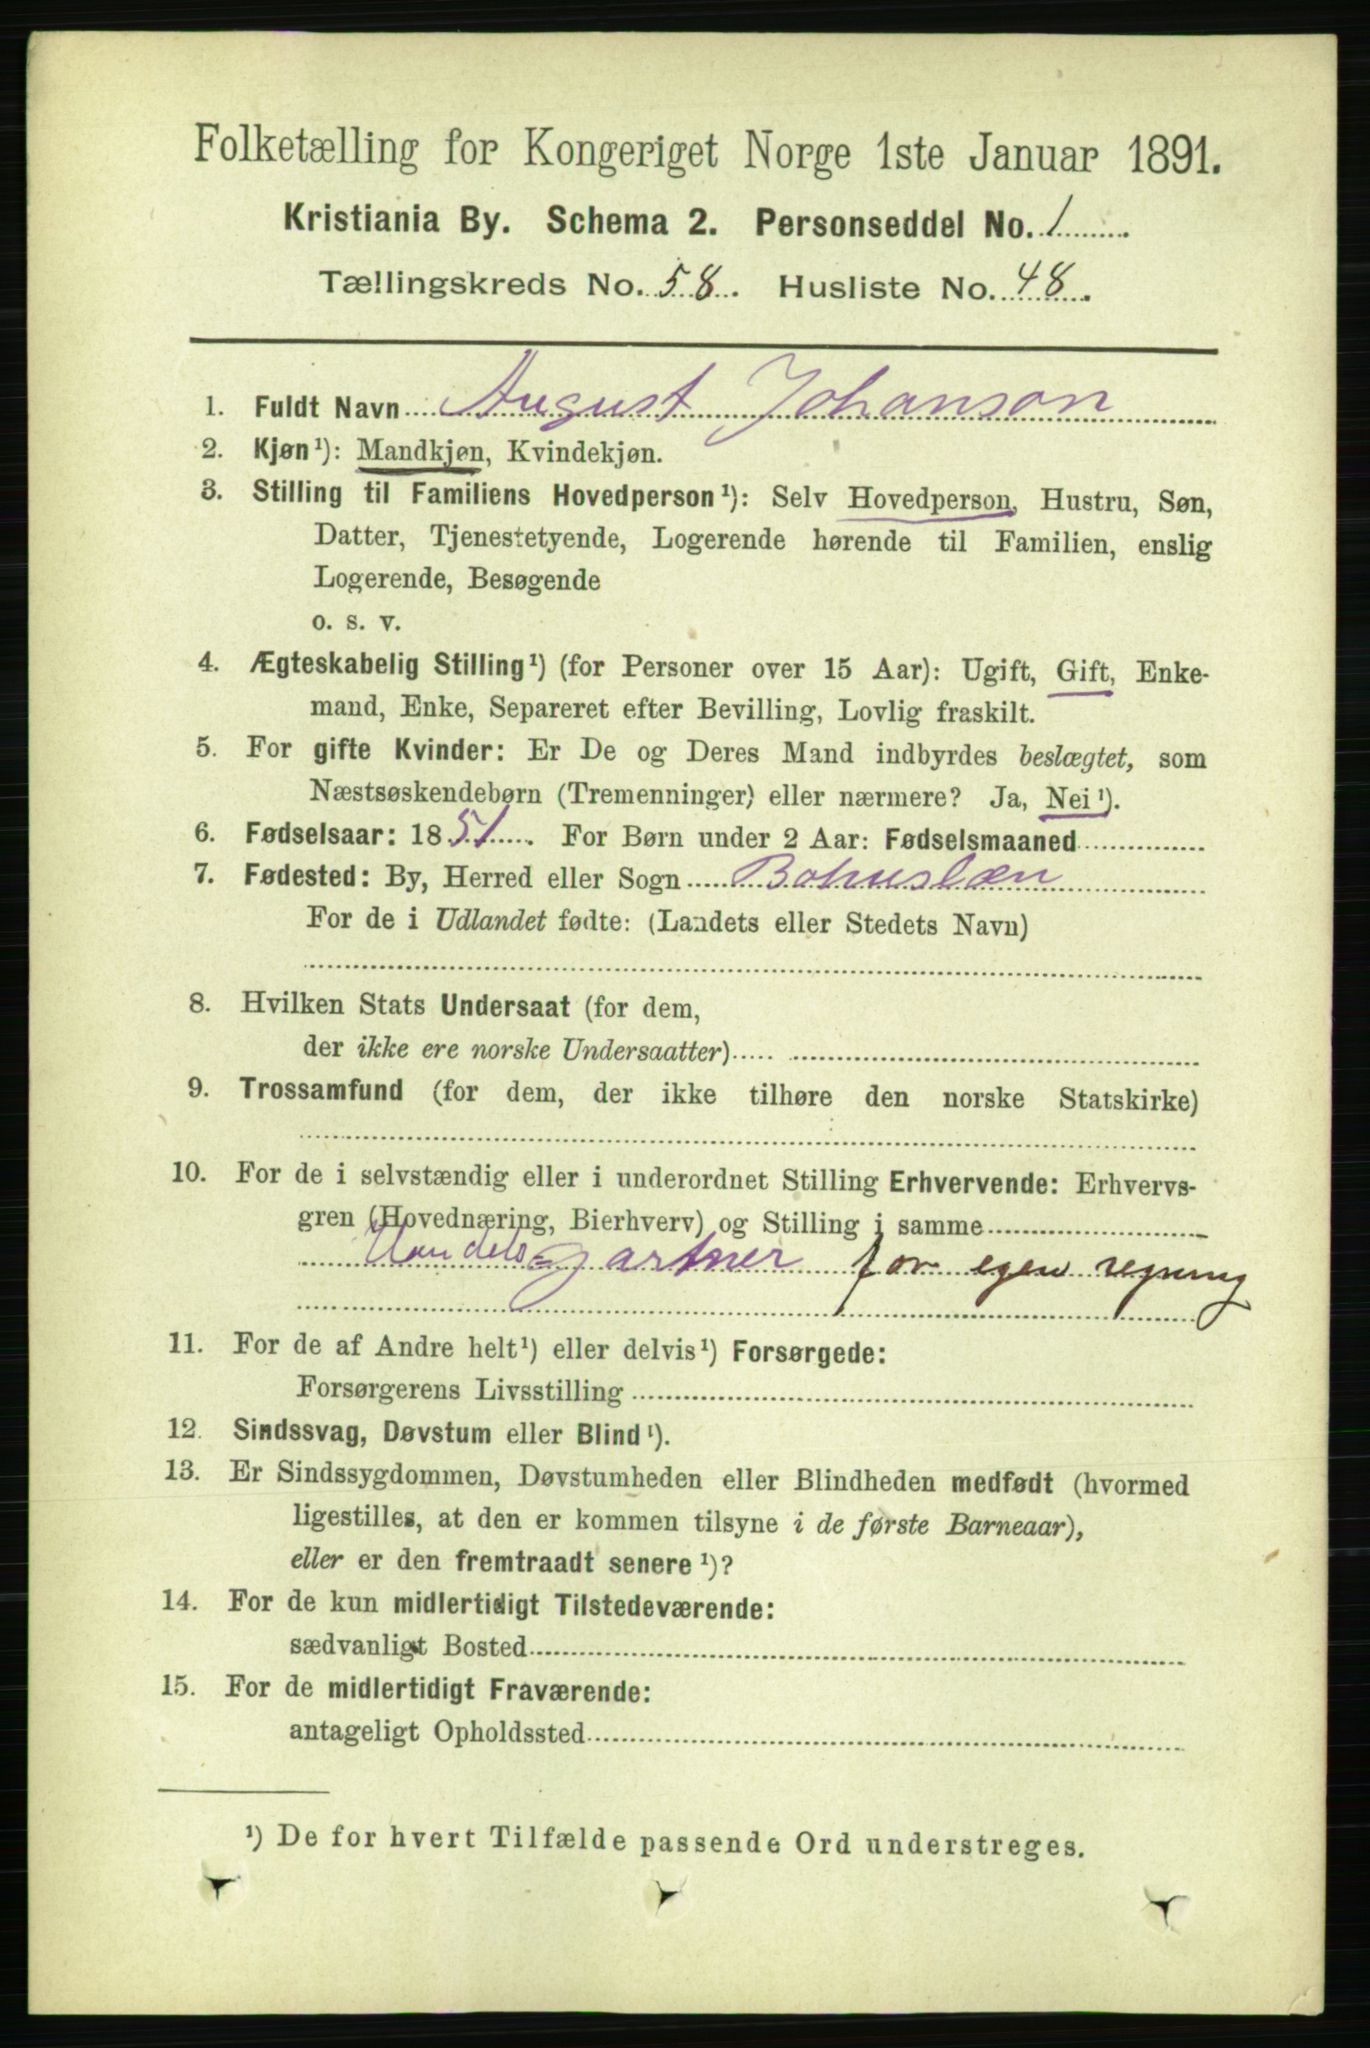 Folketælling for Kongeriget Norge 1ste Januar 1891.
Kristiania By. Schema 2. Personseddel No. 1
Tællingskreds No. 58. Husliste No. 48.
1. Fuldt Navn August Johanson
2. Kjøn¹): Mandkjøn, Kvindekjøn.
3. Stilling til Familiens Hovedperson¹): Selv Hovedperson, Hustru, Søn,
Datter, Tjenestetyende, Logerende hørende til Familien, enslig
Logerende, Besøgende
o. s. v.
4. Ægteskabelig Stilling¹) (for Personer over 15 Aar): Ugift, Gift, Enke-
mand, Enke, Separeret efter Bevilling, Lovlig fraskilt.
5. For gifte Kvinder: Er De og Deres Mand indbyrdes beslægtet, som
Næstsøskendebørn (Tremenninger) eller nærmere? Ja, Nei¹).
6. Fødselsaar: 1851. For Børn under 2 Aar: Fødselsmaaned
7. Fødested: By, Herred eller Sogn Bohuslæn
For de i Udlandet fødte: (Landets eller Stedets Navn)
8. Hvilken Stats Undersaat (for dem,
der ikke ere norske Undersaatter)
9. Trossamfund (for dem, der ikke tilhøre den norske Statskirke)
10. For de i selvstændig eller i underordnet Stilling Erhvervende: Erhvervs-
gren (Hovednæring, Bierhverv) og Stilling i samme
Handels=gartner for egen regning
11. For de af Andre helt¹) eller delvis¹) Forsørgede:
Forsørgerens Livsstilling
12. Sindssvag, Døvstum eller Blind¹).
13. Er Sindssygdommen, Døvstumheden eller Blindheden medfødt (hvormed
ligestilles, at den er kommen tilsyne i de første Barneaar),
eller er den fremtraadt senere¹)?
14. For de kun midlertidigt Tilstedeværende:
sædvanligt Bosted
15. For de midlertidigt Fraværende:
antageligt Opholdssted
¹) De for hvert Tilfælde passende Ord understreges.